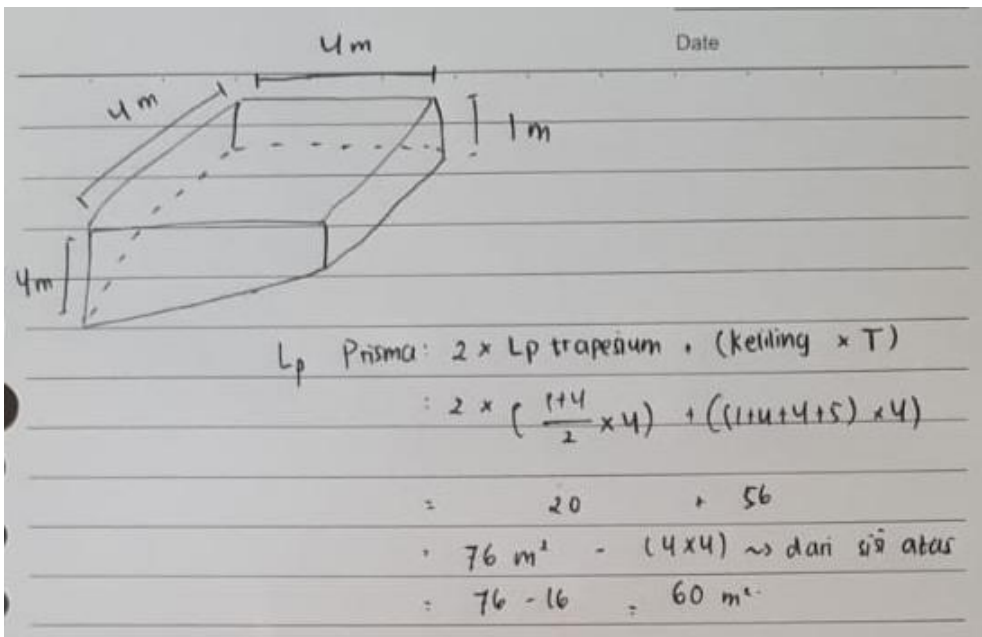 Date
4 m
4 m
1 m
4 m
Lp Prisma : 2 × Lp trapesium + (keliling × T)
: 2 × ( (1+4)/2 × 4) + ((1+4+4+5) × 4)
= 20 + 56
= 76 m² - (4×4) ~> dari sisi atas
= 76 - 16 = 60 m²